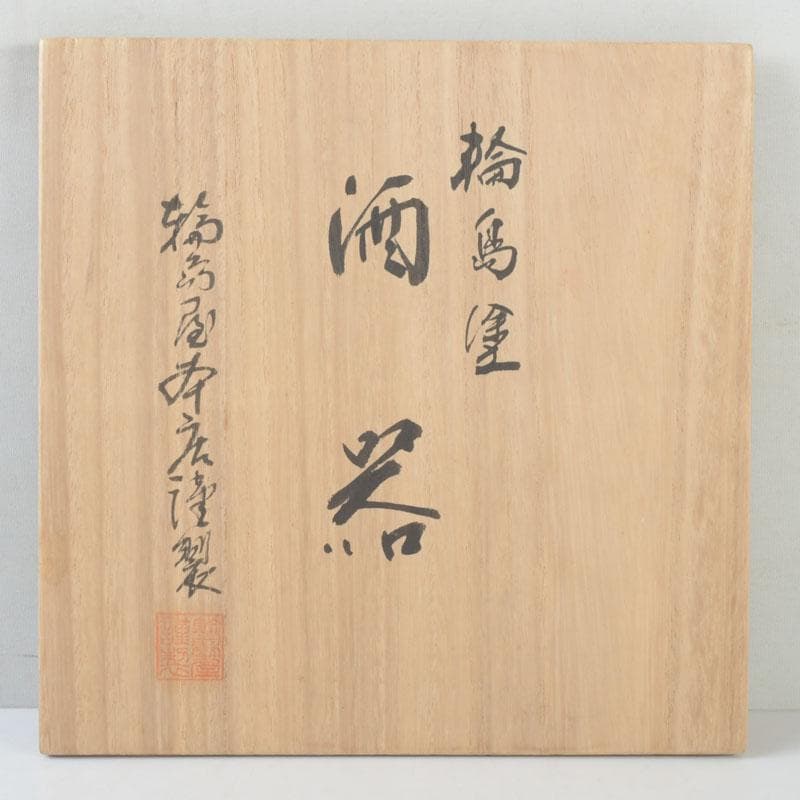 輪島塗
酒器
輪島屋本店謹製